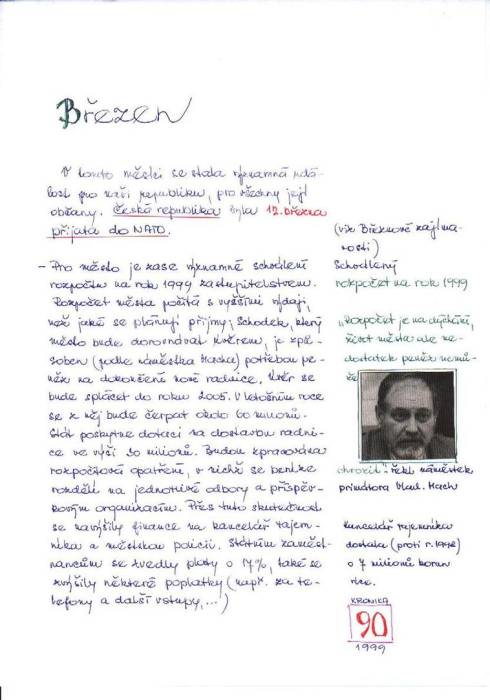 Březen
V tomto měsíci se stala významná udá-
lost pro naši republiku, pro všechny její
občany. Česká republika byla 12. března
přijata do NATO.
- Pro město je zase významné schválení
rozpočtu na rok 1999 zastupitelstvem.
Rozpočet města počítá s vyššími výdaji,
než jaké se plánují příjmy; Schodek, který
město bude dorovnávat úvěrem, je způ-
soben (podle náměstka Macha) potřebou pe-
něz na dokončení nové radnice. Úvěr se
bude splácet do roku 2005. V letošním roce
se z něj bude čerpat okolo 60 milionů.
Stát poskytne dotaci na dostavbu radni-
ce ve výši 30 milionů. Budou zpracována
rozpočtová opatření, v nichž se peníze
rozdělí na jednotlivé odbory a příspěv-
kovým organizacím. Přes tuto skutečnost
se navýšily finance na kancelář tajem-
níka a městskou policii. Státním zaměst-
nancům se zvedly platy o 17%, také se
zvýšily některé poplatky (např. za te-
lefony a další vstupy,...)
(viz Březnové zajíma-
vosti)
Schválený
rozpočet na rok 1999
"Rozpočet je na dýchání,
život města ale ne-
dostatek peněz nemů-
že
ohrozit." řekl náměstek
primátora Vlad. Mach
Kancelář tajemníka
dostala (proti r. 1998)
o 7 milionů korun
více.
KRONIKA
90
1999